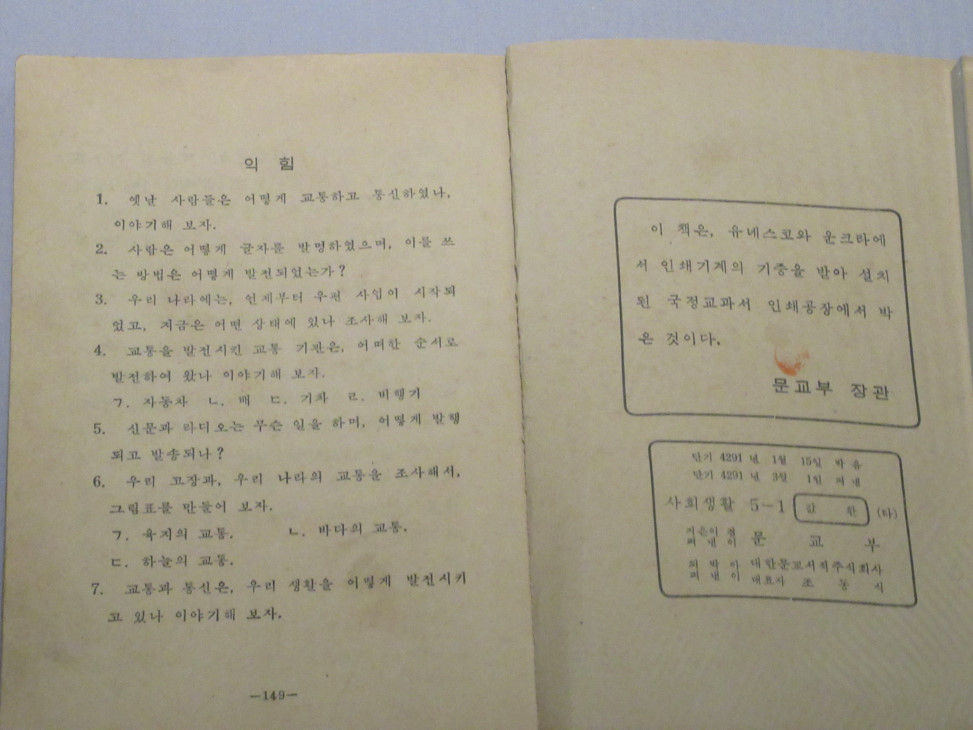 익 힘
1. 옛날 사람들은 어떻게 교통하고 통신하였나,
이야기해 보자.
2. 사람은 어떻게 글자를 발명하였으며, 이를 쓰
는 방법은 어떻게 발전되었는가?
3. 우리 나라에는, 언제부터 우편 사업이 시작되
었고, 지금은 어떤 상태에 있나 조사해 보자.
4. 교통을 발전시킨 교통 기관은, 어떠한 순서로
발전하여 왔나 이야기해 보자.
ㄱ. 자동차 ㄴ. 배 ㄷ. 기차 ㄹ. 비행기
5. 신문과 라디오는 무슨 일을 하며, 어떻게 발행
되고 발송되나?
6. 우리 고장과, 우리 나라의 교통을 조사해서,
그림표를 만들어 보자.
ㄱ. 육지의 교통. ㄴ. 바다의 교통.
ㄷ. 하늘의 교통.
7. 교통과 통신은, 우리 생활을 어떻게 발전시키
고 있나 이야기해 보자.
—149—
이 책은, 유네스코와 운크라에
서 인쇄기계의 기증을 받아 설치
된 국정교과서 인쇄공장에서 박
은 것이다.
문교부 장관
단기 4291 년 1월 15일 박음
단기 4291 년 3월 1일 펴냄
사회생활 5-1 값 환 (타)
지은이 겸
펴낸이 문 교 부
박아
펴낸이 대한문교서적주식회사
대표자 조 동 시